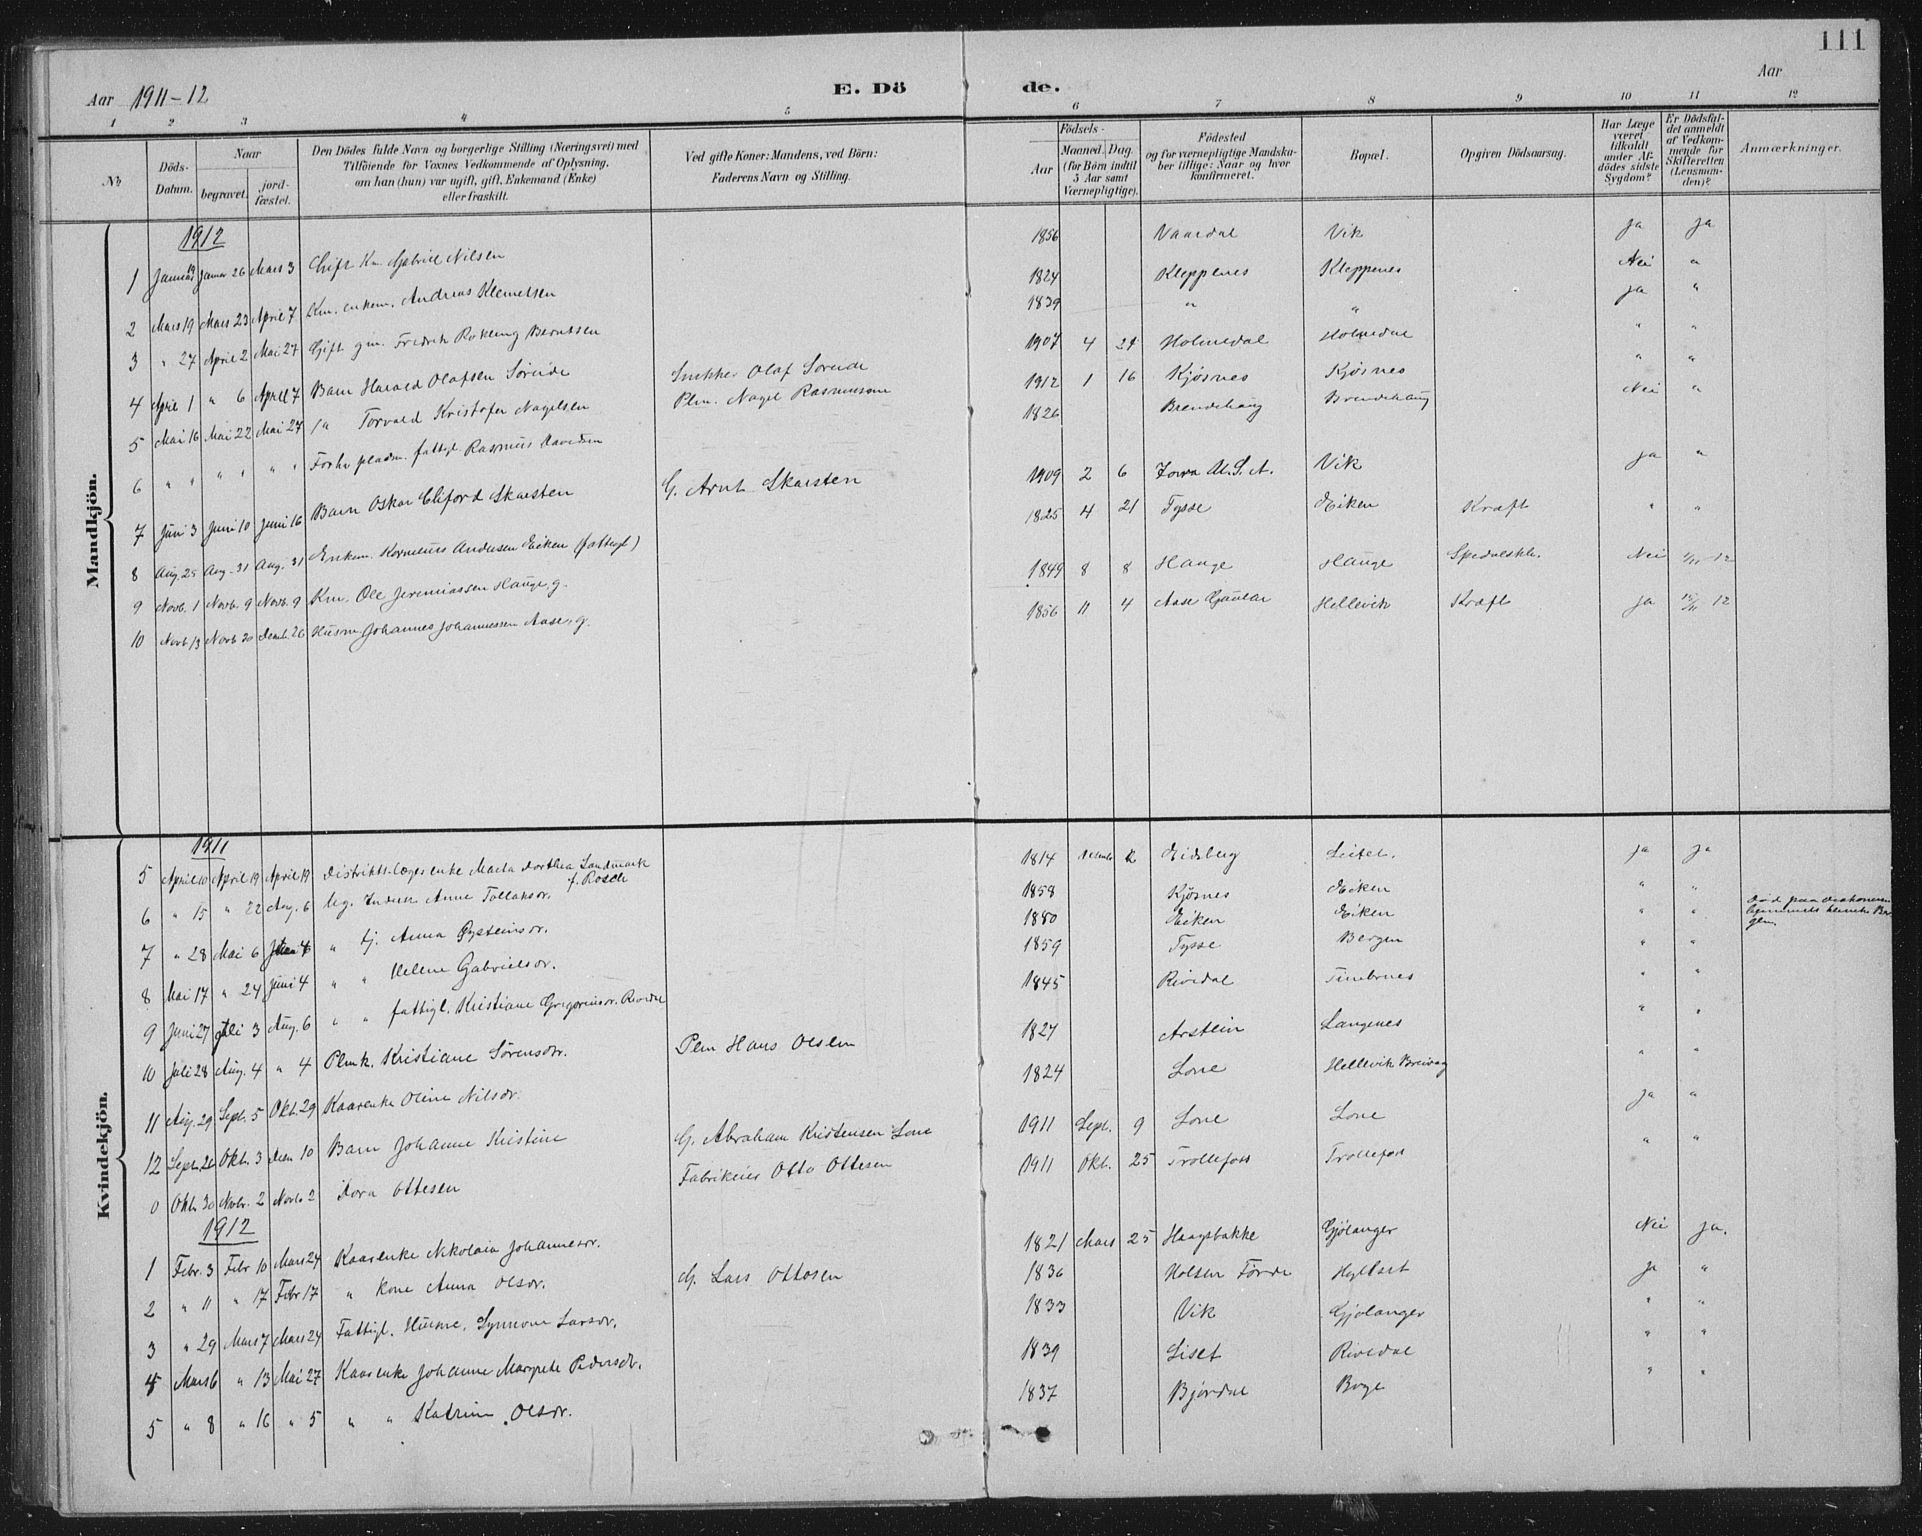 111
Aar 1911-12
E. Döde.
Aar
1 2 3 4 5 6 7 8 9 10 11 12
No
Döds-Datum.
Naar
begravet.
jord-fæstet.
Den Dödes fulde Navn og borgerlige Stilling (Næringsvei) med
Tilföiende for Voxnes Vedkommende af Oplysning,
om han (hun) var ugift, gift, Enkemand (Enke)
eller fraskilt.
Ved gifte Koner: Mandens, ved Börn:
Faderens Navn og Stilling.
Födsels-
Aar
Maaned. Dag.
(for Börn indtil
5 Aar samt
Værnepligtige).
Födested
og for værnepligtige Mandska-
ber tillige: Naar og hvor
konfirmeret.
Bopæl.
Opgiven Dödsaarsag.
Har Læge
været
tilkaldt
under Af-
dödes sidste
Sygdom?
Er Dödsfal-
det anmeldt
af Vedkom-
mende for
Skifteretten
(Lensman-
den)?
Anmærkninger.
Mandkjön.
1912
1 Januar 19 Januar 26 Mars 3 Gift Km Gabriel Nilsen 1856 Vaardal Vik Ja Ja
2 Mars 19 Mars 23 April 7 Km. enkem. Andreas Klemetsen 1824 Kleppenes Kleppenes Nei "
3 " 27 April 2 Mai 27 Gift gm. Fredrik Berntsen 1839 " " Ja "
4 April 1 " 6 April 7 Barn Harald Olafsen Søreide Snekker Olaf Søreide 1907 4 29 Holmedal Holmedal " "
5 Mai 16 Mai 22 Mai 27 " Torvald Kristofer Nagelsen Plm. Nagel Rasmussen 1912 1 16 Kjøsnes Kjøsnes " "
6 " " " " " " Forhv pladsm. fattigl Rasmus Davidsen 1826 Brendehaug Brendehaug Nei "
7 Juni 3 Juni 10 Juni 16 Barn Oskar Cliford Skarsten G. Arnt Skarsten 1909 2 6 Jowa U.S.A. Vik Ja "
8 Aug. 25 Aug. 31 Aug. 31 Enkem. Kornelius Andersen Eiken (fattigl) 1825 4 21 Tysse Eiken Kræft " "
9 Novb. 1 Novb. 9 Novb. 9 Km. Ole Jeremiassen Hauge, g. 1849 8 8 Hauge Hauge Spedalskh. Nei 12
10 Novb 13 Novb 20 Decmb. 26 Husm Johannes Johannessen Aase, g. 1856 11 4 Aase Gaular Hellevik Kræft Ja 15/11 12
Kvindekjön.
1911
5 April 10 April 19 April 19 Distriktslægeenke Marta Dorthea Landmark f. Rosch 1814 Decemb 12 Eidsberg Leitet. Ja Ja
6 " 15 " 22 Aug. 6 Ug. Inderst Anne Tollaksdr. 1858 Kjøsnes Eiken " "
7 " 28 Mai 6 Juni 4 " tj. Anna Øysteinsdr. 1880 Eiken Eiken " "
Død paa
8 Mai 17 " 24 Juni 4 " " Helene Gabrielsdr. 1859 Tysse Bergen " "
9 Juni 27 Juli 3 Aug. 6 " " fattigl. Kristiane Gregoriusdr. Rivedal 1845 Rivedal " "
10 Juli 28 Aug. 4 " 4 Plmk. Kristiane Sørensdr. Plm Hans Olsen 1827 Arstein Langenes " "
11 Aug. 29 Sept. 5 Okt. 29 Kaarenke Oline Nilsdr. 1824 Lone Hellevik Breivag " "
12 Sept. 26 Okt. 3 Decm 10 Barn Johanne Kristine G. Abraham Kristensen Lone 1911 Sept. 9 Lone Lone Ja "
0 Oktr 30 Novbr. 2 Novb 2 Dora Ottesen Fabrikeier Otto Ottesen 1911 Okt. 25 Trollefoss Trollefoss " "
1912
1 Febr. 3 Febr 10 Mars 24 Kaarenke Nikolaia Johannesdr. 1821 Mars 25 Haagsbakke Gjølanger Nei Ja.
2 " 11 " 17 Febr 17 " kone Anna Olsdr. G. Lars Ottosen 1836 Holsen Førde Ja "
3 " 29 Mars 7 Mars 24 Fattigl. Husme. Synnøve Larsdr. 1833 Vik Gjølanger " "
4 Mars 6 " 13 Mai 27 Kaarenke Johanne Margrete Pedersdr. 1839 Liset Rivedal " "
5 " 8 " 16 " 5 " " Katrine Olsdr. 1837 Bjørdal Boge " "